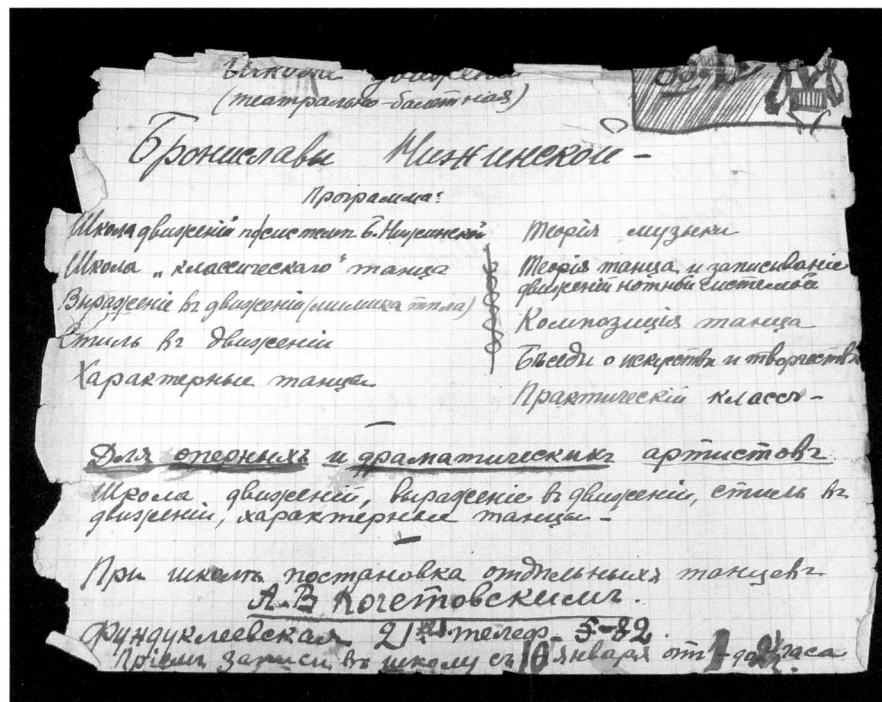 Школа движенiй
(театрально-балетная)
Брониславы Нижинской -
Программа:
Школа движенiй по системѣ Б. Нижинской
Школа „классическаго" танца
Выраженiе въ движенiи (мимика тѣла)
Стиль въ движенiи
Характерные танцы
Теорiя музыки
Теорiя танца и записыванiе
движенiй нотной системой
Композицiя танца
Бѣседы о искусствѣ и творчествѣ
Практическiй классъ -
Для оперныхъ и драматическихъ артистовъ
Школа движенiй, выраженiе въ движенiи, стиль въ
движенiи, характерные танцы -
При школѣ постановка отдѣльныхъ танцевъ
А. В Кочетовскимъ.
Фундуклеевская 21 телеф. 5-82
Прiемъ записи въ школу съ 10 января отъ 1 - до часа